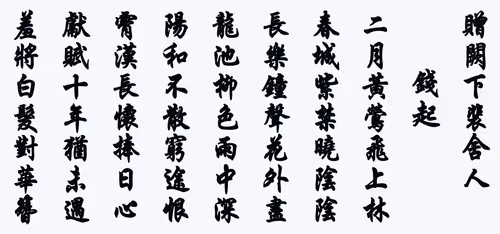 贈闕下裴舍人
錢起
二月黃鶯飛上林
春城紫禁曉陰陰
長樂鐘聲花外盡
龍池柳色雨中深
陽和不散窮途恨
霄漢長懷捧日心
獻賦十年猶未遇
羞將白髮對華簪